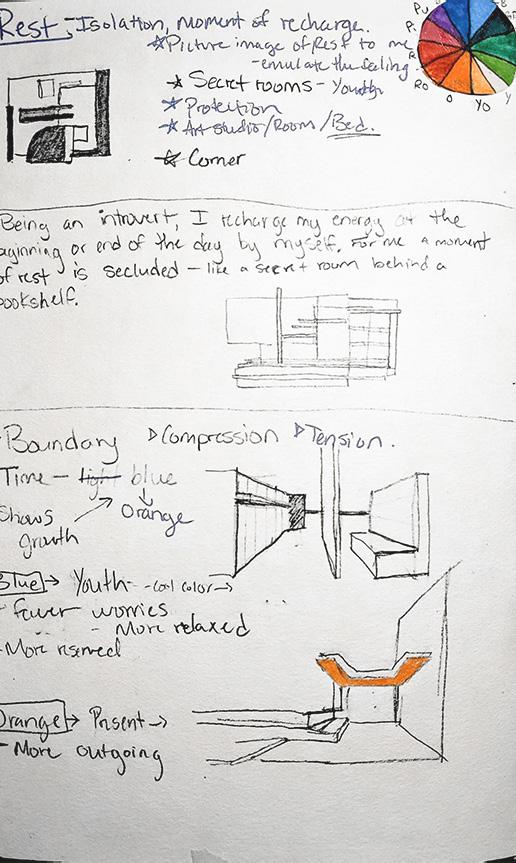 Rest; Isolation, moment of recharge.
☆Picture image of Rest to me
- emulate the feeling.
☆ Secret rooms - Youth
☆ Protection
☆ Art studio/Room/Bed.
☆ Corner
Pu
R
Ro
O
YO
Y
Being an introvert, I recharge my energy at the
beginning or end of the day by myself. For me a moment
of rest is secluded - like a secret room behind a
bookshelf.
Boundary ▷Compression ▷Tension.
Time - light blue
Orange
Shows
growth
Blue → Youth - cool color →
- fewer worries
- More relaxed
- More reserved
Orange → Present →
- More outgoing